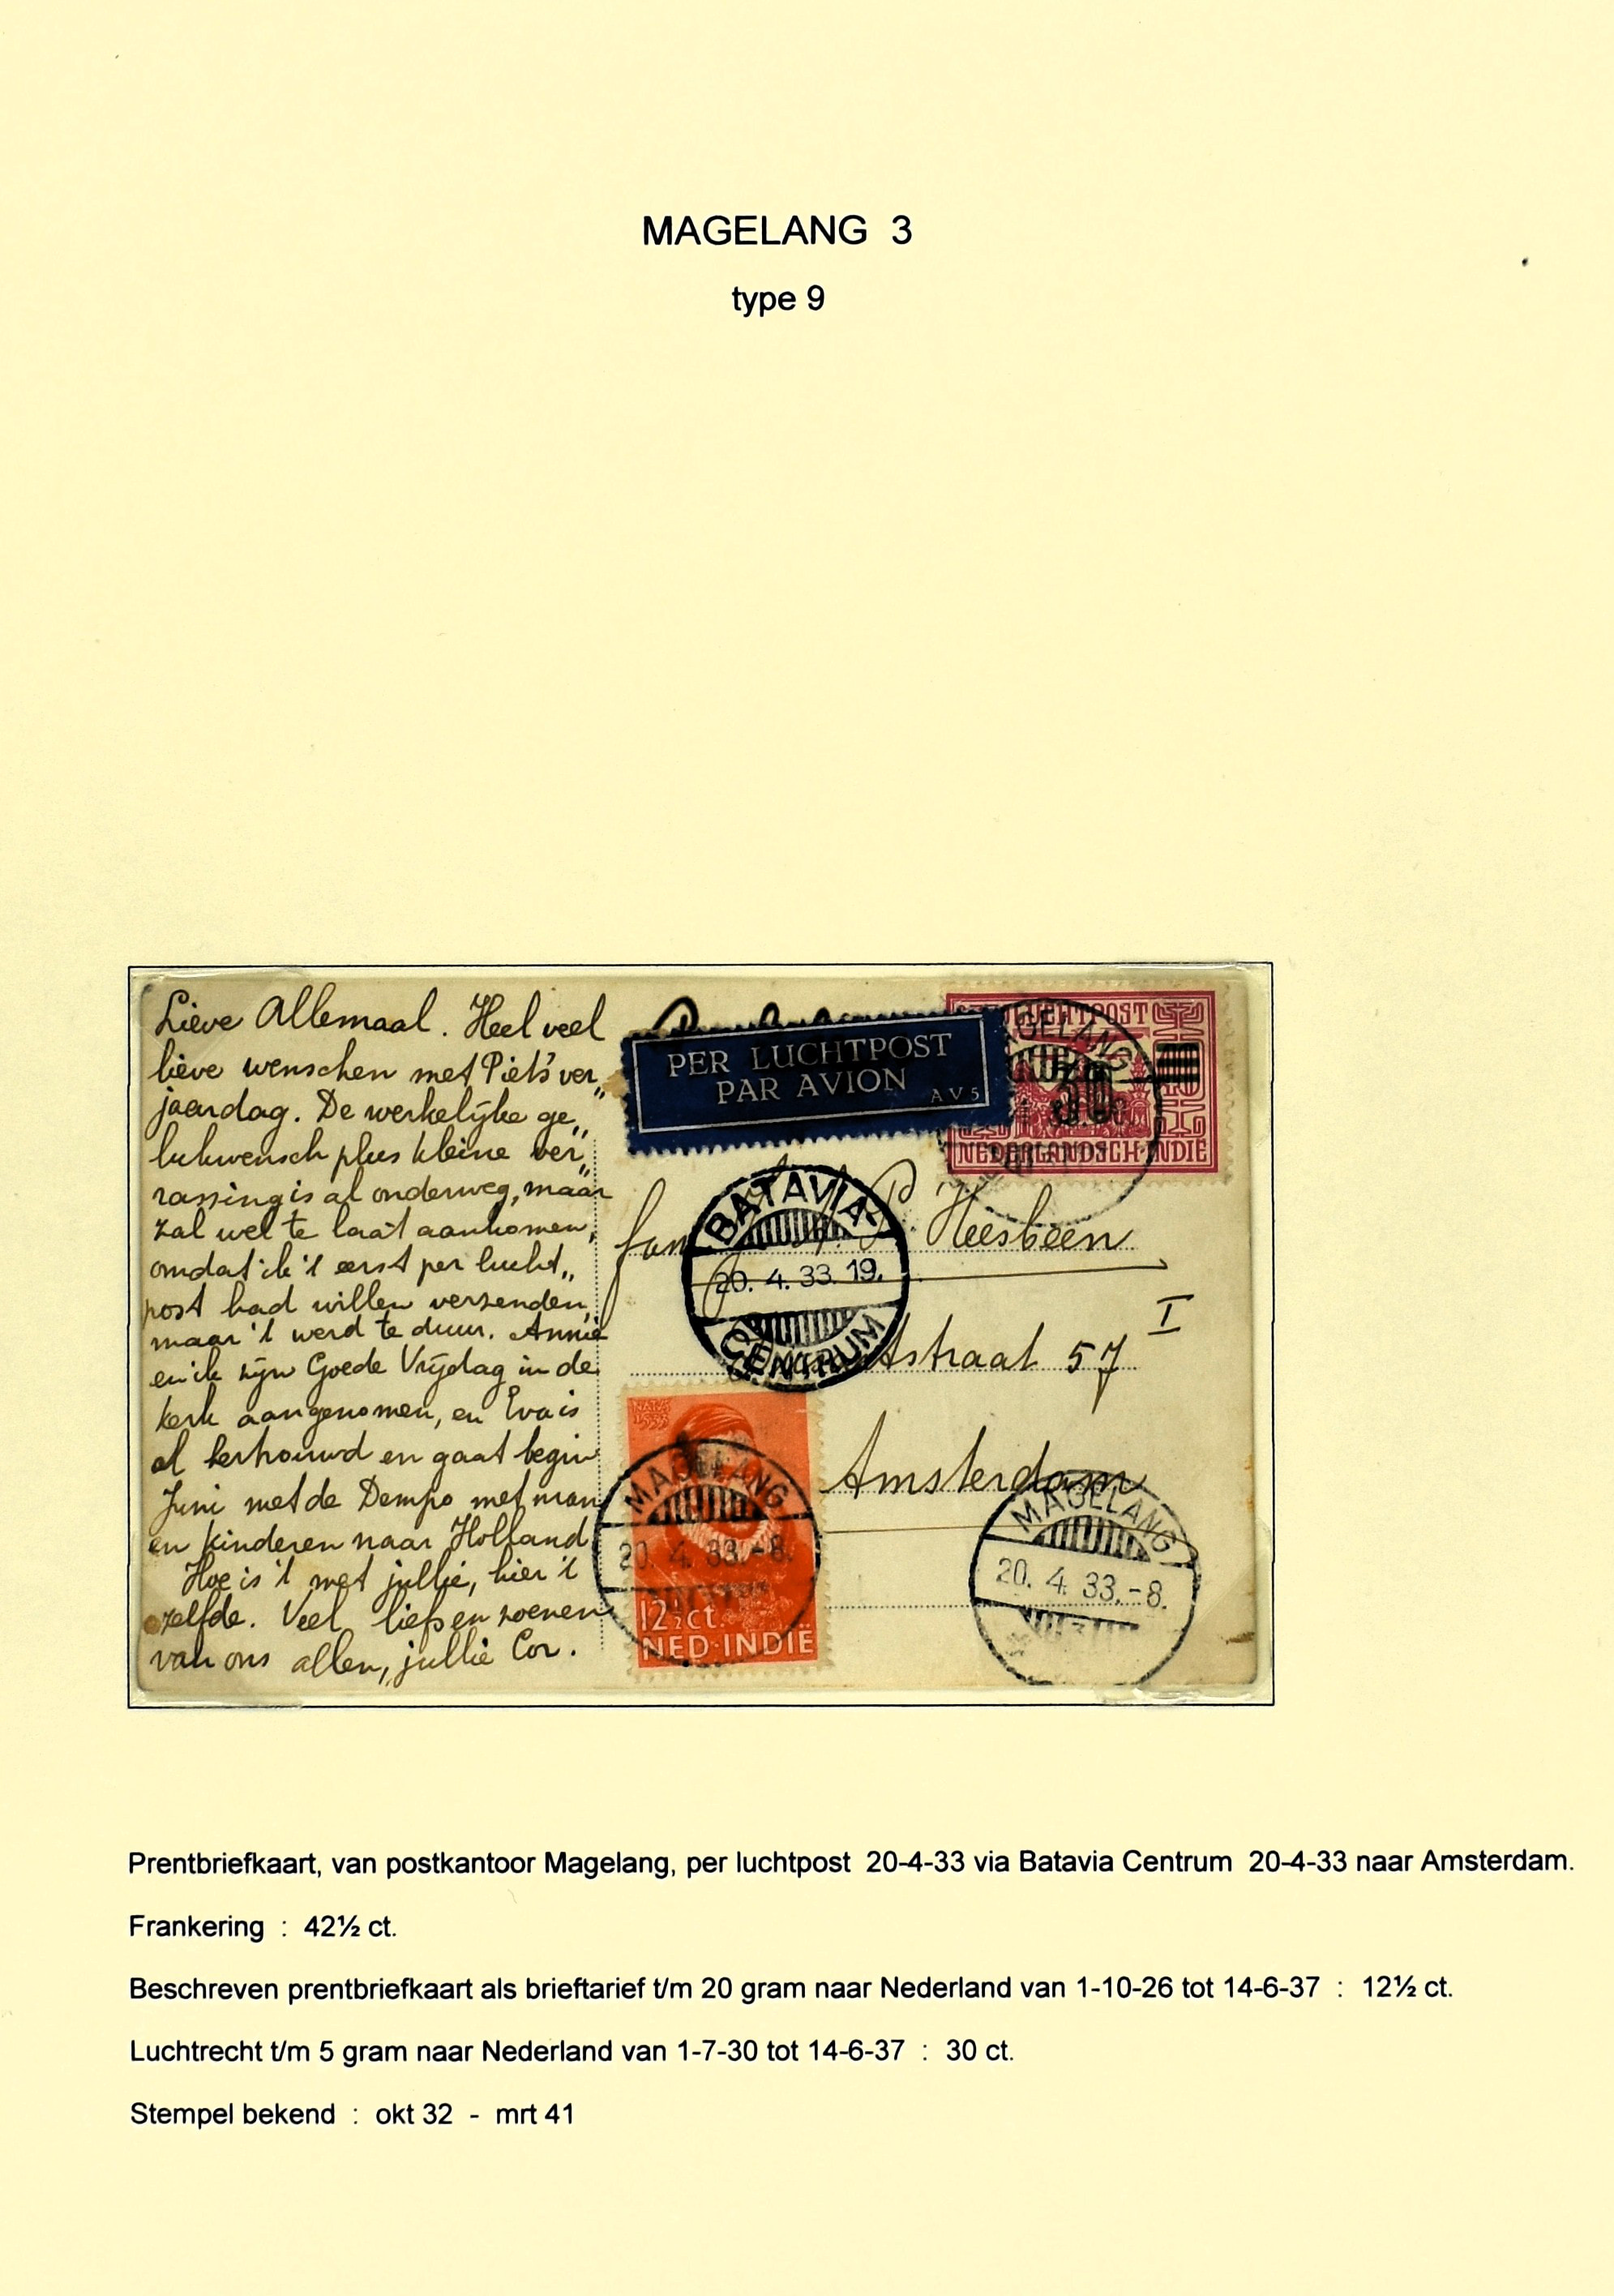 MAGELANG 3
type 9
Lieve Allemaal. Heel veel
lieve wenschen met Piet's ver„
jaardag. De werkelijke ge„
lukwensch plus kleine ver„
rassing is al onderweg, maar
zal wel te laat aankomen,
omdat ik 't eerst per lucht„
post had willen verzenden,
maar 't werd te duur. Annie
en ik zijn Goede Vrijdag in de
kerk aangenomen, en Eva is
al hertrouwd en gaat begin
Juni met de Dempo met man
en kinderen naar Holland
Hoe is 't met jullie, hier 't
zelfde. Veel liefs en zoenen
van ons allen, jullie Cor.
PER LUCHTPOST
PAR AVION
AV5
LUCHTPOST
30
NEDERLANDSCH-INDIE
MAGELANG
BATAVIA
20. 4. 33. 19.
CENTRUM
fam P. Heesbeen
straat 57 I
Amsterdam
MAGELANG
20. 4. 33. -8.
12½ ct.
NED·INDIË
MAGELANG
20. 4. 33. -8.
3
Prentbriefkaart, van postkantoor Magelang, per luchtpost 20-4-33 via Batavia Centrum 20-4-33 naar Amsterdam.
Frankering : 42½ ct.
Beschreven prentbriefkaart als brieftarief t/m 20 gram naar Nederland van 1-10-26 tot 14-6-37 : 12½ ct.
Luchtrecht t/m 5 gram naar Nederland van 1-7-30 tot 14-6-37 : 30 ct.
Stempel bekend : okt 32 - mrt 41